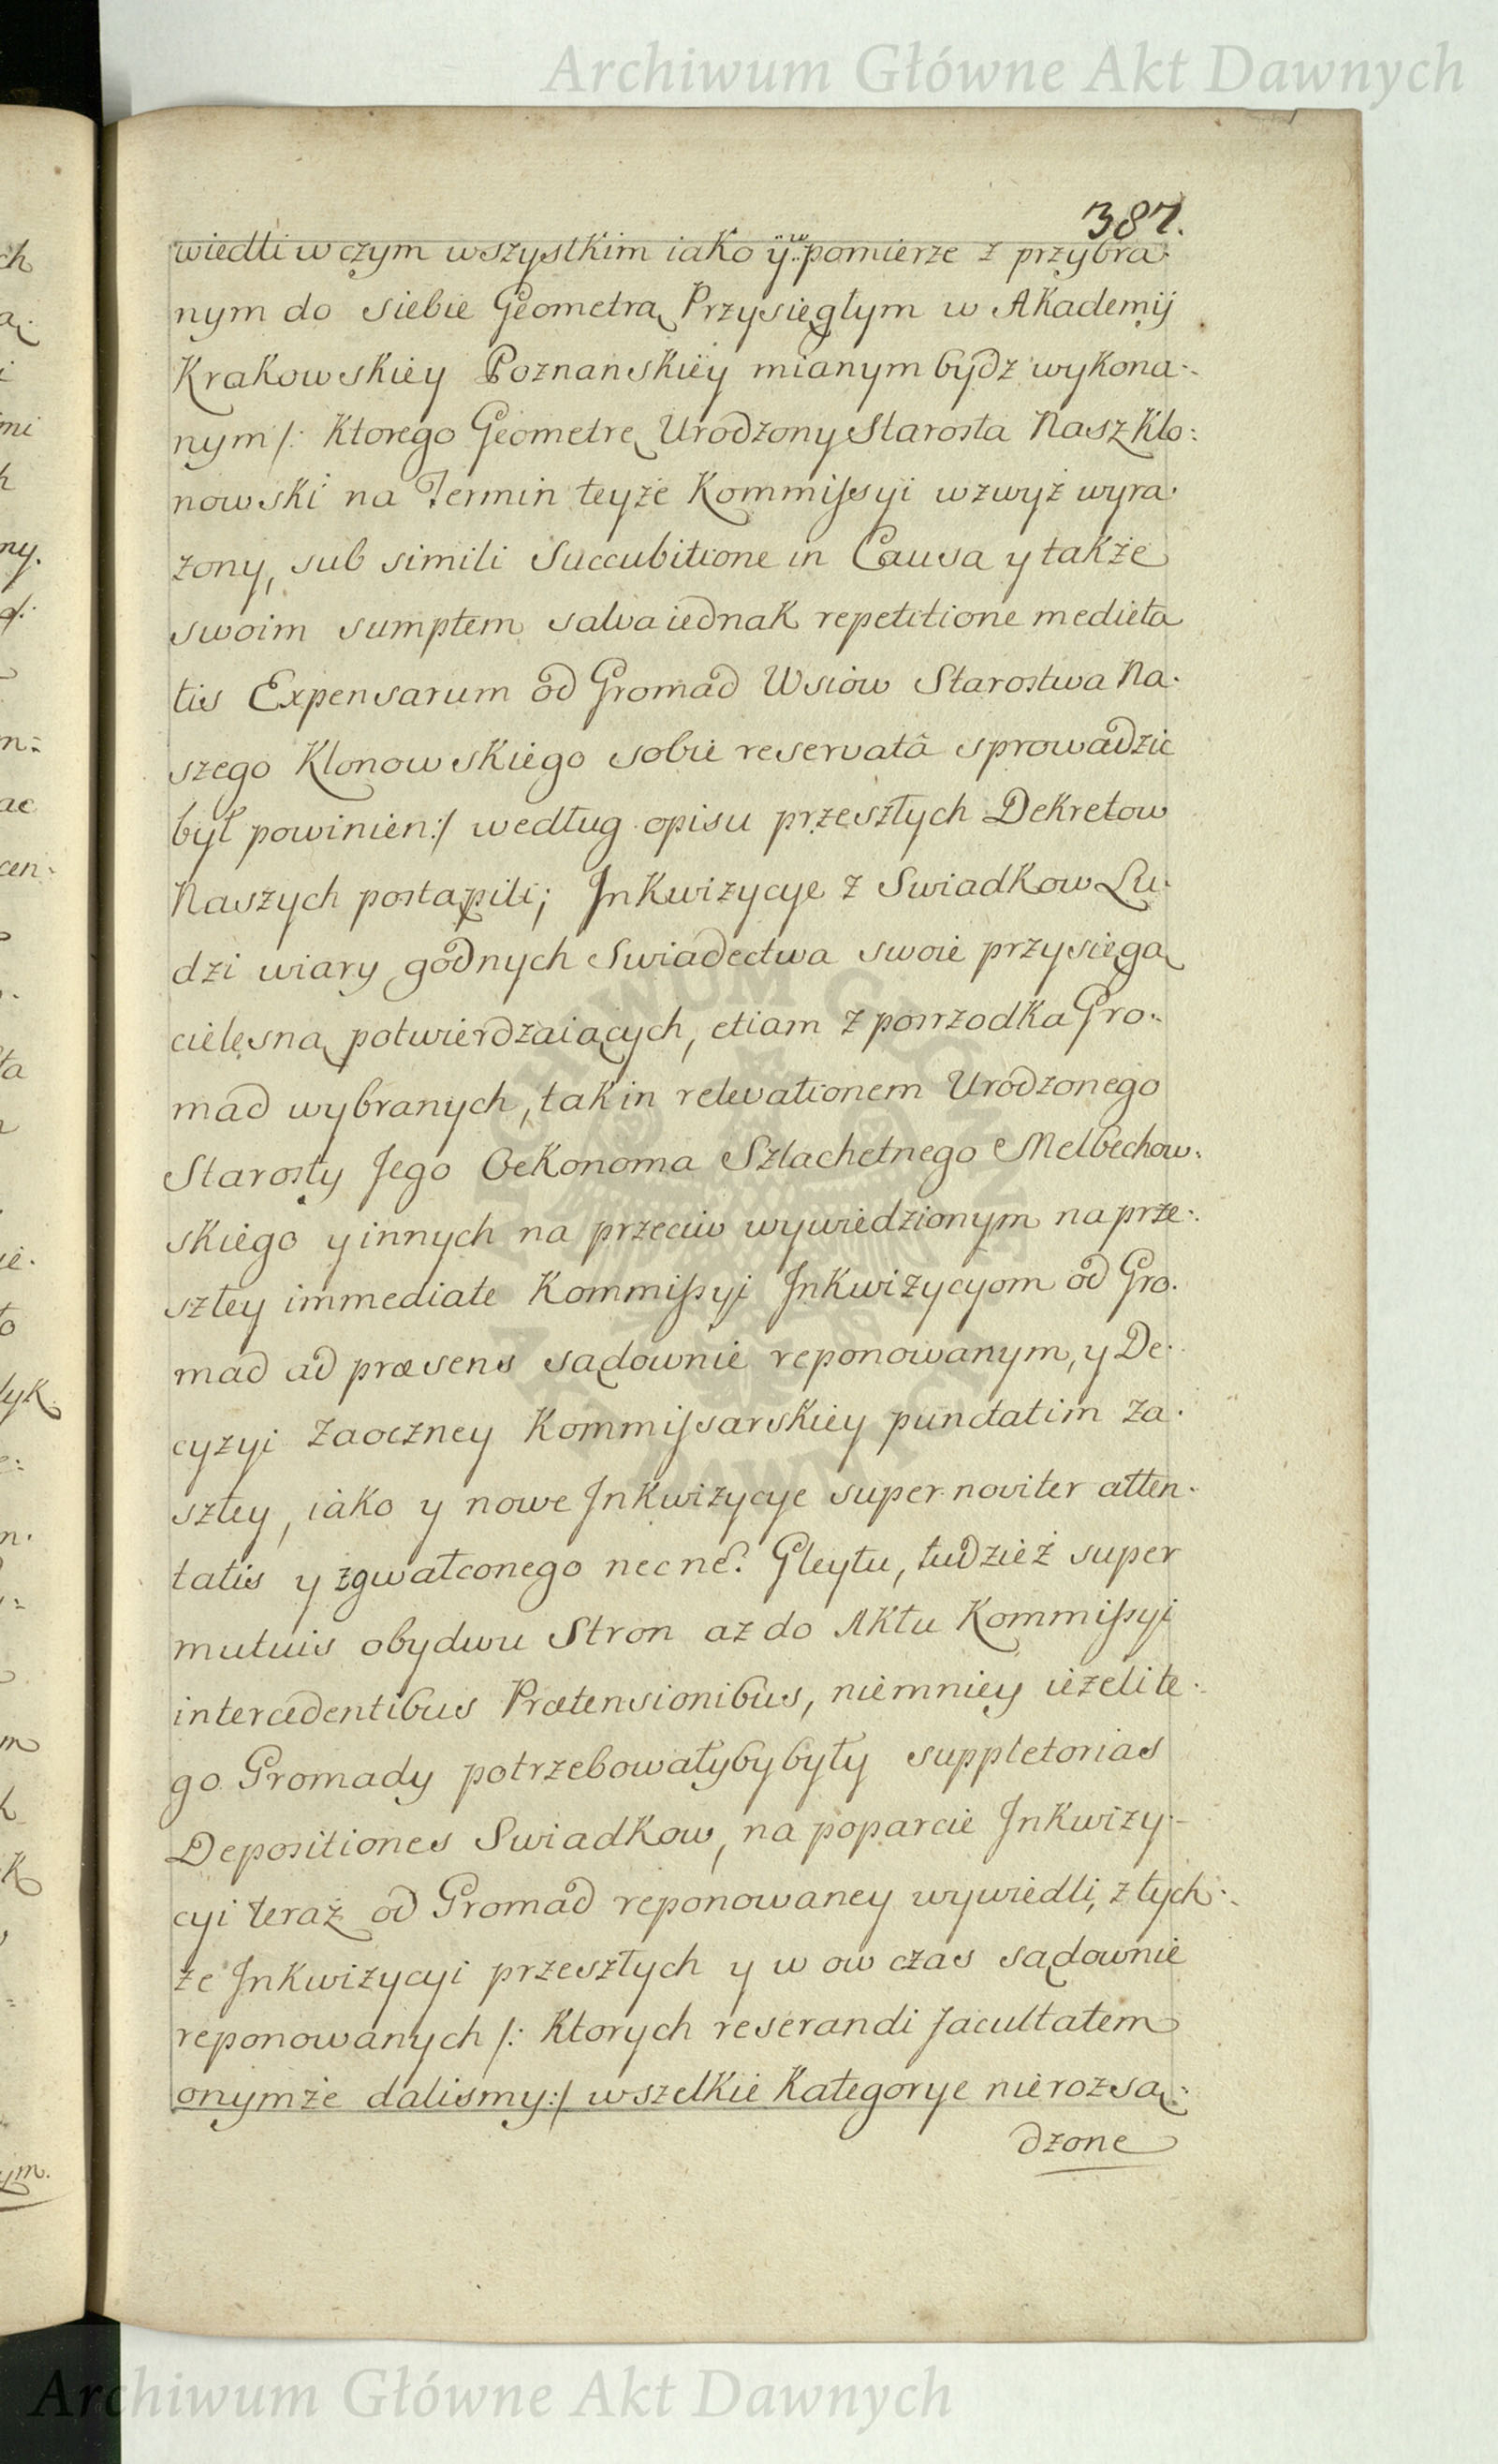 Archiwum Główne Akt Dawnych
387.
wiedli w czym wszystkim iako ÿ w pomierze z przybra:
nym do siebie Geometrą Przysięgłym w Akademij
Krakowskiey Poznanskiey mianym bydz wykona:
nym /: Ktorego Geometrę Urodzony Starosta Nasz Klo:
nowski na Termin teyże Kommissyi wzwyż wyra:
żony, sub simili Succubitione in Causa y także
swoim sumptem salva iednak repetitione medieta
tis Expensarum od Gromad Wsiow Starostwa Na:
szego Klonowskiego sobie reservatâ sprowadzic
był powinien :/ według opisu przeszłych Dekretow
Naszych postąpili; Inkwizycye z Swiadkow Lu:
dzi wiary godnych Swiadectwa swoie przysięgą
cielęsną potwierdzaiących, etiam z posrzodka Gro:
mad wybranych, tak in relevationem Urodzonego
Starosty Jego Oekonoma Szlachetnego Melbechow:
skiego y innych na przeciw wywiedzionym na prze:
szłey immediate Kommissyi Inkwizycyom od Gro:
mad ad præsens sądownie reponowanym, y De:
cyzyi Zaoczney Kommissarskiey punctatim za:
szłey, iako y nowe Inkwizycye super noviter atten:
tatis y zgwałconego necne? Gleytu, tudzież super
mutuis obydwu Stron aż do Aktu Kommissyi
intercedentibus Prætensionibus, niemniey ieżeli te:
go Gromady potrzebowałyby były suppletorias
Depositiones Swiadkow, na poparcie Inkwizy:
cyi teraz od Gromad reponowaney wywiedli, z tych:
że Inkwizycyi przeszłych y w ow czas sądownie
reponowanych /: Ktorych reserandi facultatem
onymże dalismy :/ wszelkie Kategorye nierozsą:
dzone
Archiwum Główne Akt Dawnych